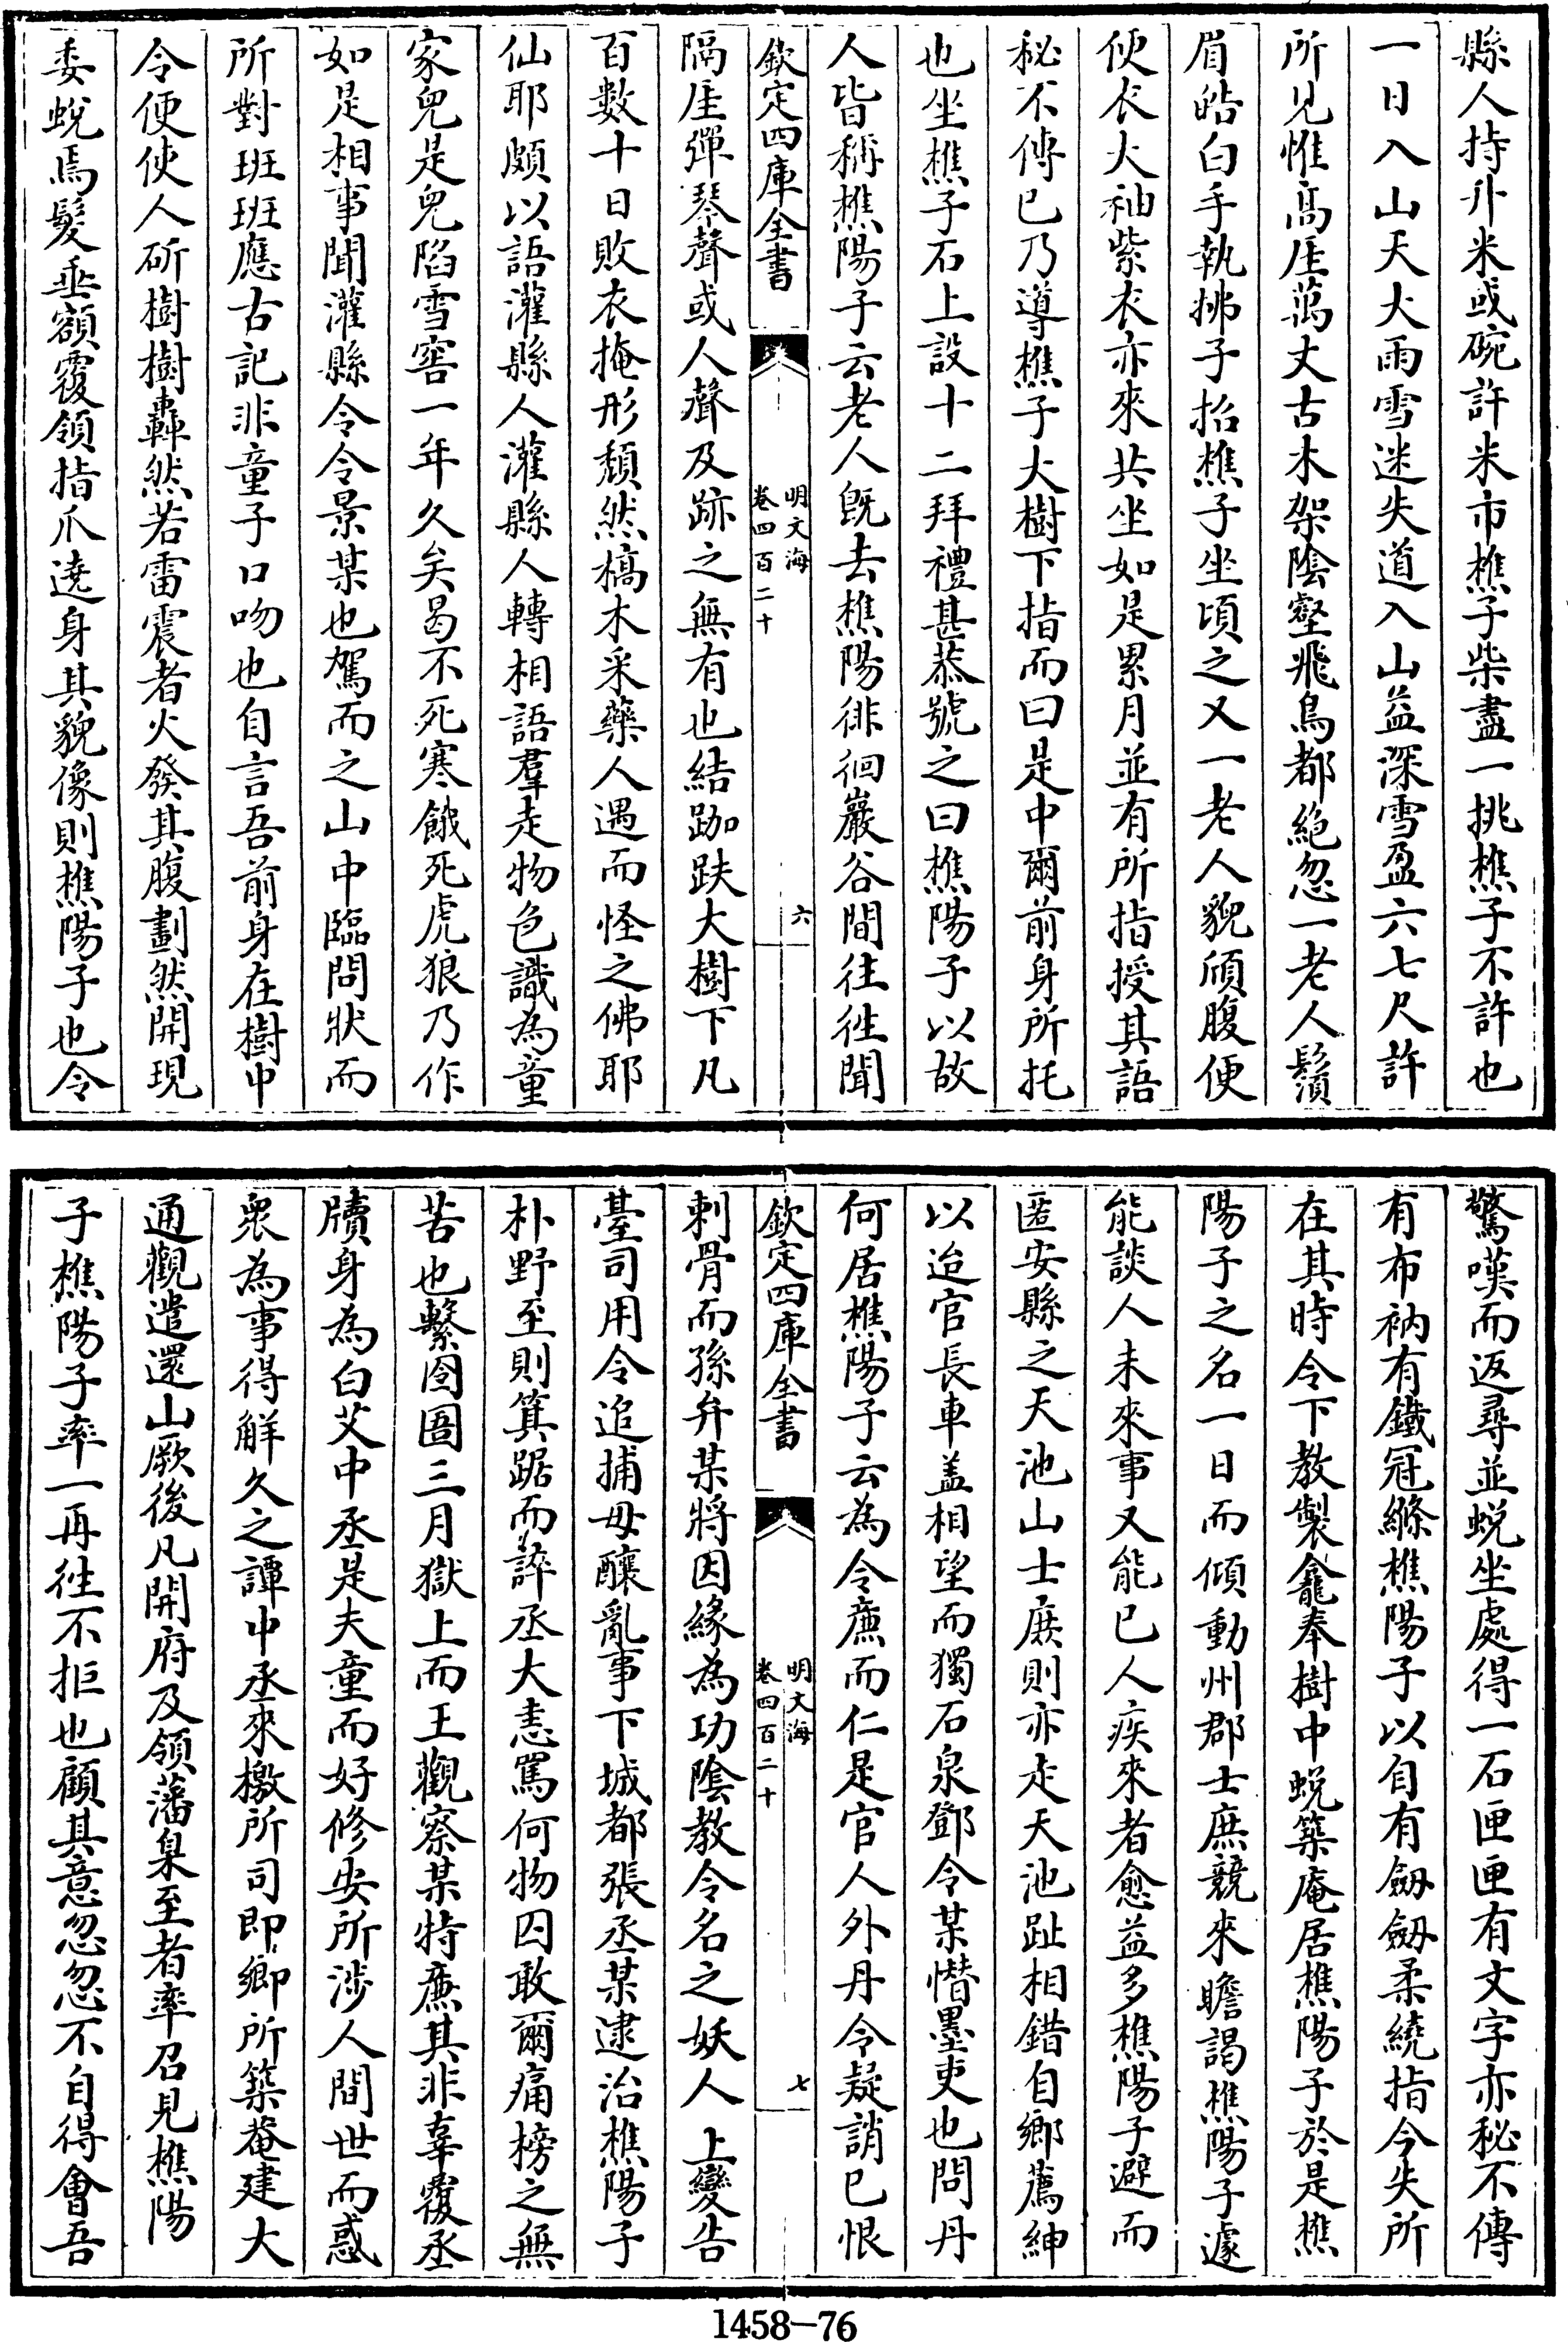 縣人持升米或碗許米市樵子柴盡一挑樵子不許也
一日入山天大雨雪迷失道入山益深雪盈六七尺許
所見惟高厓萬丈古木架陰壑飛鳥都絶忽一老人鬚
眉皓白手執拂子招樵子坐頃之又一老人貌頎腹便
便衣大袖紫衣亦來共坐如是累月並有所指授其語
秘不傳已乃導樵子大樹下指而曰是中爾前身所托
也坐樵子石上設十二拜禮甚恭號之曰樵陽子以故
人皆稱樵陽子云老人既去樵陽徘徊巖谷間往往聞
欽定四庫全書
明文海
卷四百二十
六
隔厓彈琴聲或人聲及跡之無有也結跏趺大樹下凡
百數十日敗衣掩形頽然槁木采藥人遇而怪之佛耶
仙耶頗以語灌縣人灌縣人轉相語羣走物色識為童
家兒是兒陷雪窖一年久矣曷不死寒餓死虎狼乃作
如是相事聞灌縣令令景某也駕而之山中臨問狀而
所對班班應古記非童子口吻也自言吾前身在樹中
令便使人斫樹樹轟然若雷震者火發其腹劃然開現
委蛻焉髮垂額覆領指爪遶身其貌像則樵陽子也令
驚嘆而返尋並蛻坐處得一石匣匣有文字亦秘不傳
有布衲有鐵冠縧樵陽子以自有劔劔柔繞指今失所
在其時令下教製龕奉樹中蛻築庵居樵陽子於是樵
陽子之名一日而傾動州郡士庶競來瞻謁樵陽子遽
能談人未來事又能已人疾來者愈益多樵陽子避而
匿安縣之天池山士庶則亦走天池趾相錯自鄉薦紳
以迨官長車盖相望而獨石泉鄧令某憯墨吏也問丹
何居樵陽子云為令亷而仁是官人外丹令疑誚已恨
欽定四庫全書
明文海
卷四百二十
七
刺骨而孫弁某將因緣為功隂教令名之妖人上變告
臺司用令追捕毋釀亂事下城都張丞某逮治樵陽子
朴野至則箕踞而誶丞大恚罵何物囚敢爾痛榜之無
苦也繫囹圄三月獄上而王觀察某特亷其非辜覆丞
牘身為白艾中丞是夫童而好修安所涉人間世而惑
衆為事得解久之譚中丞來檄所司即鄉所築菴建大
通觀遣還山厥後凡開府及領藩臬至者率召見樵陽
子樵陽子率一再往不拒也顧其意忽忽不自得會吾
1458—76